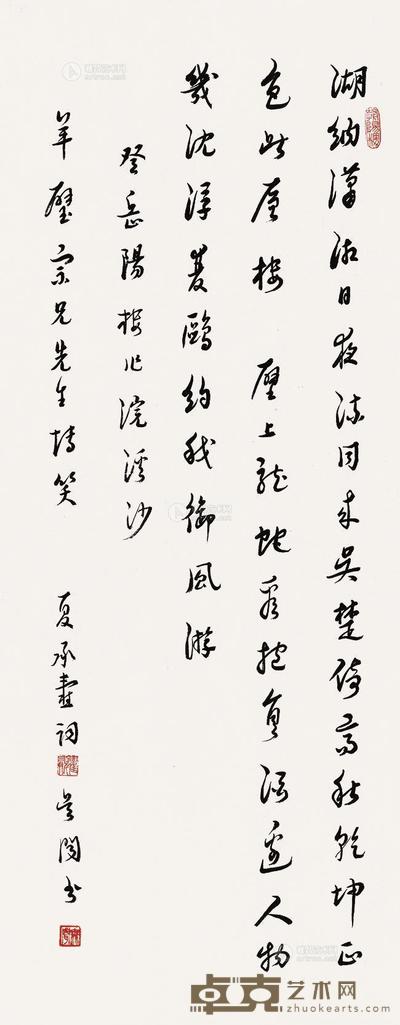 湖納瀟湘日夜流同來吳楚倚高秋乾坤正
色此層樓 壁上龍蛇看抱負酒邊人物
幾沈浮雙鷗約我御風游
登岳陽樓作浣溪沙
羊璧宗兄先生博笑 夏承燾詞 吳聞書
卓克艺术网
www.zhuokearts.com